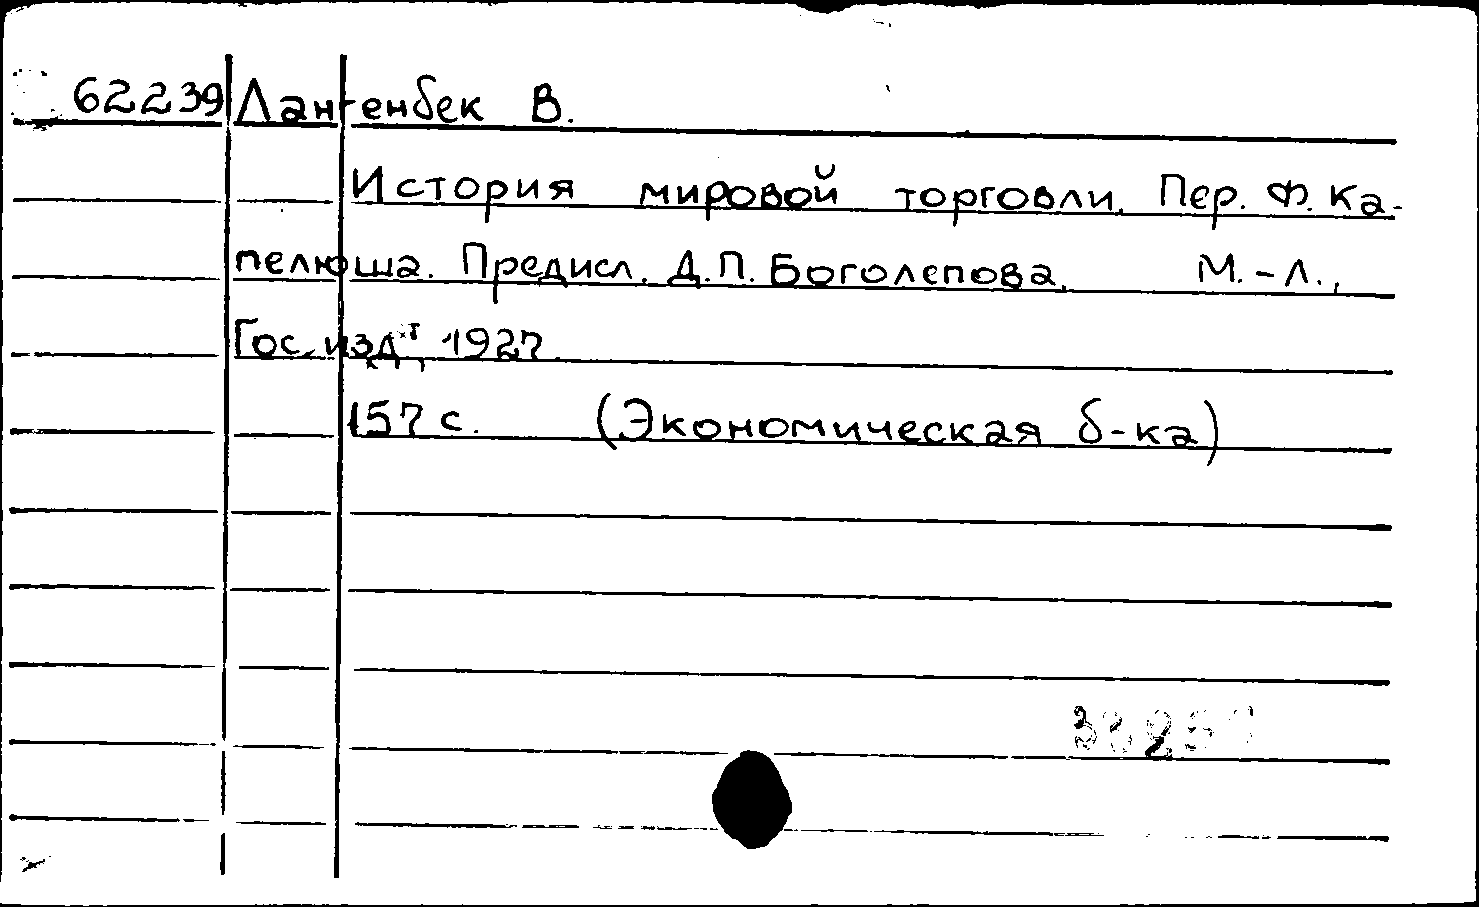 62239 Лангенбек В.
История мировой торговли. Пер. Ф. Ка-
пелюша. Предисл. Д.П. Боголепова. М.-Л.,
Гос. изд-т, 1927.
157 с. (Экономическая б-ка)